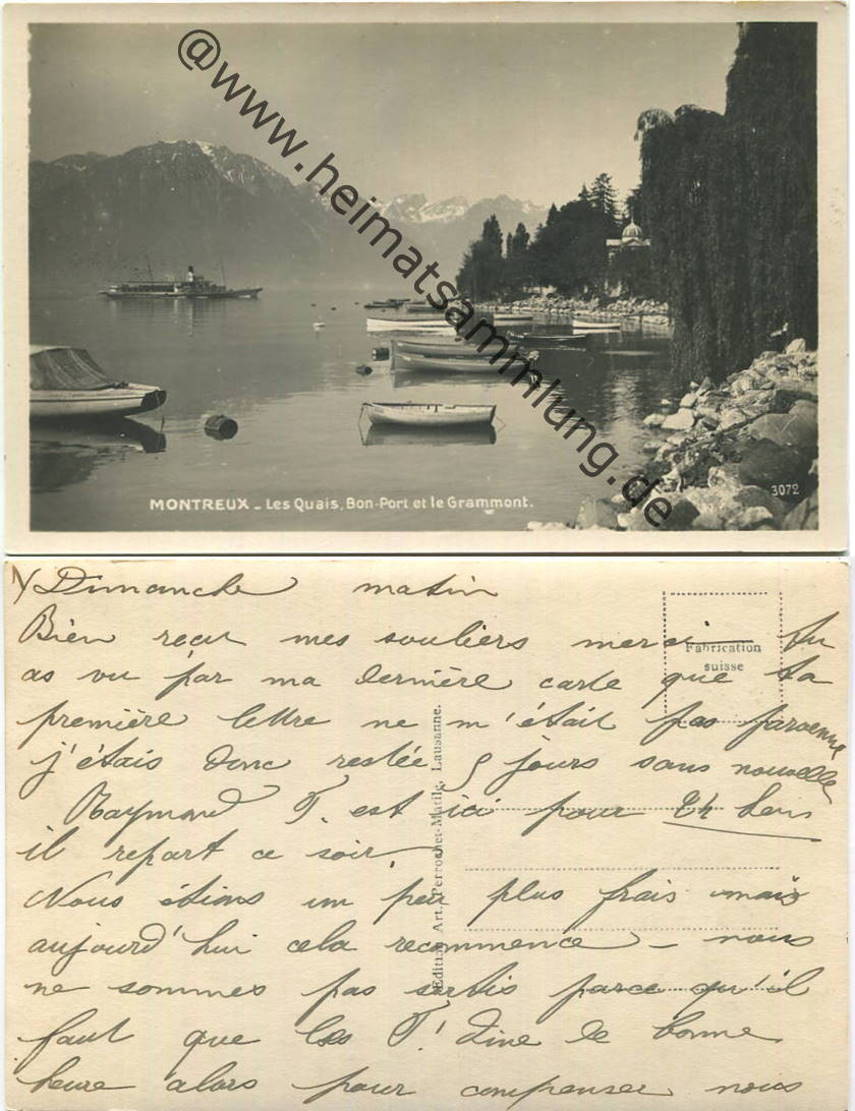 @www.heimatsammlung.de
MONTREUX - Les Quais, Bon-Port et le Grammont.
3072
Dimanche matin
Bien reçu mes souliers merci. Tu
as vu par ma dernière carte que ta
première lettre ne m'était pas parvenue
j'étais donc restée 5 jours sans nouvelle
Raymond T. est ici pour 24 heures
il repart ce soir.
Nous étions un peu plus frais mais
aujourd'hui cela recommence - nous
ne sommes pas sortis parce qu'il
faut que les T! dine de bonne
heure alors pour compenser nous
Fabrication
suisse
Edition Art. Perrochet-Matile, Lausanne.